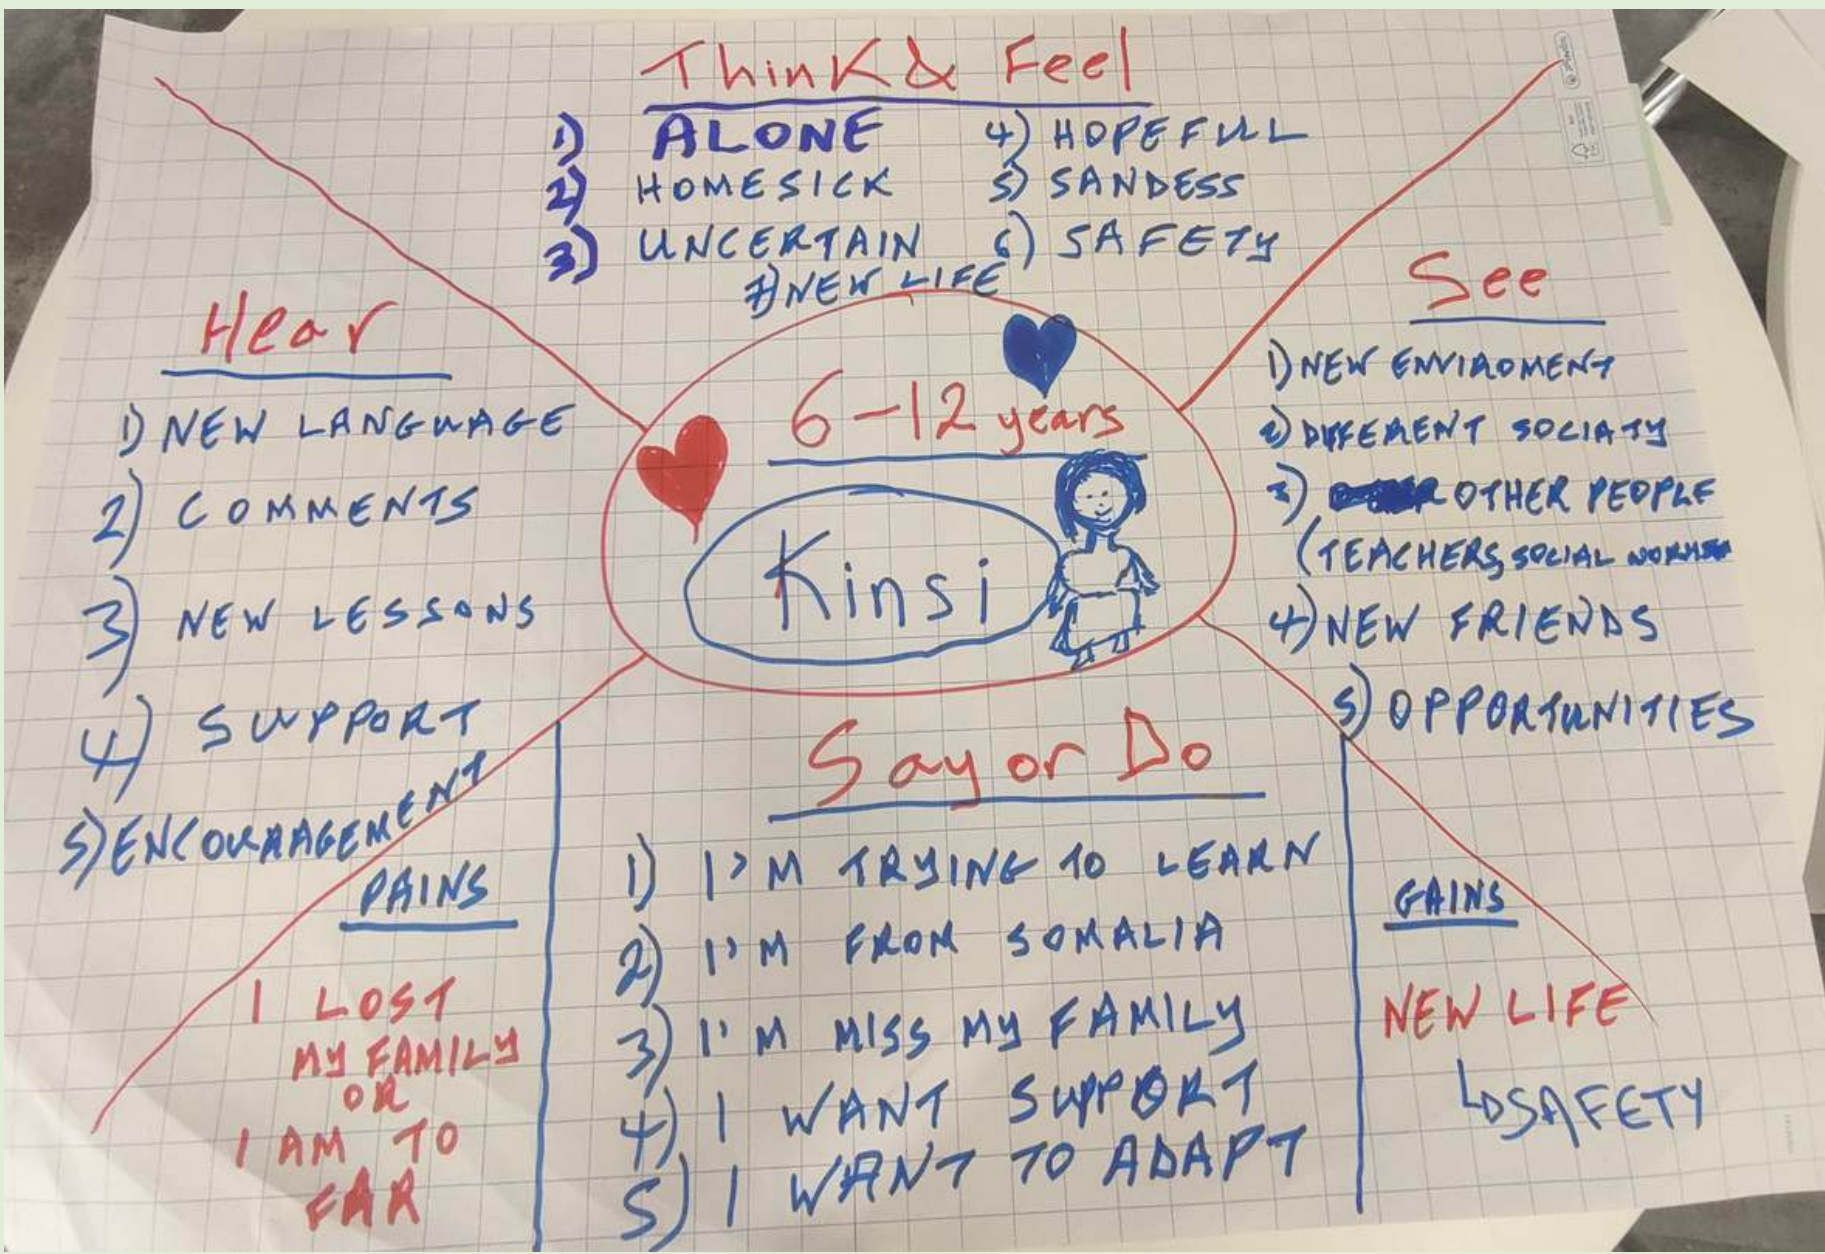 Think & Feel
1) ALONE
2) HOMESICK
3) UNCERTAIN
4) HOPEFULL
5) SANDESS
6) SAFETY
7) NEW LIFE
Hear
1) NEW LANGUAGE
2) COMMENTS
3) NEW LESSONS
4) SUPPORT
5) ENCOURAGEMENT
6-12 years
Kinsi
See
1) NEW ENVIROMENT
2) DIFFERENT SOCIATY
3) OTHER PEOPLE
(TEACHERS, SOCIAL
4) NEW FRIENDS
5) OPPORTUNITIES
PAINS
I LOST
MY FAMILY
OR
I AM TO
FAR
Say or Do
1) I'M TRYING TO LEARN
2) I'M FROM SOMALIA
3) I'M MISS MY FAMILY
4) I WANT SUPPORT
5) I WANT TO ADAPT
GAINS
NEW LIFE
SAFETY